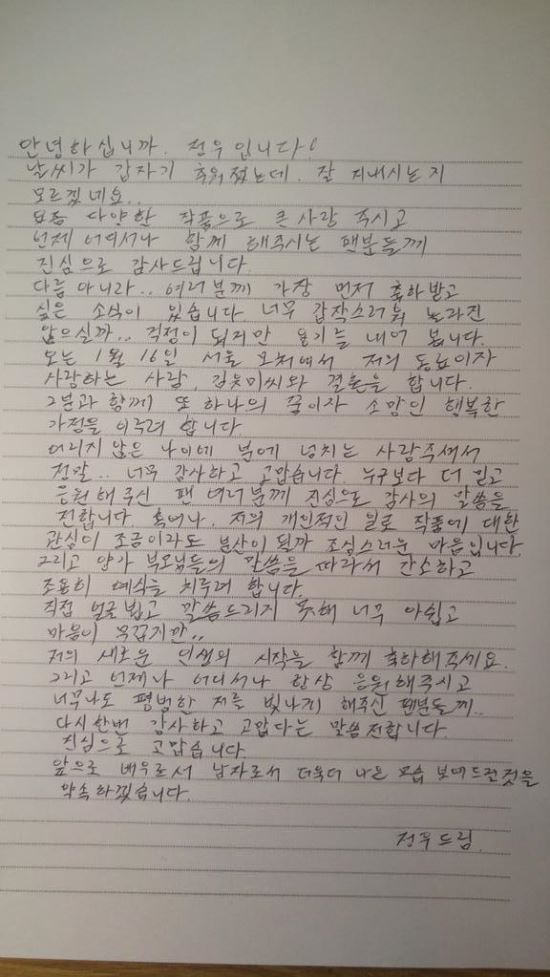 안녕하십니까. 정우입니다!
날씨가 갑자기 추워졌는데. 잘 지내시는지
모르겠네요..
요즘 다양한 작품으로 큰 사랑 주시고
언제 어디서나 함께 해주시는 팬분들께
진심으로 감사드립니다.
다름 아니라.. 여러분께 가장 먼저 축하받고
싶은 소식이 있습니다. 너무 갑작스러워 놀라진
않으실까.. 걱정이 되지만 용기를 내어 봅니다.
오는 1월 16일 서울 모처에서 저의 동료이자
사랑하는 사람, 김유미씨와 결혼을 합니다.
그분과 함께 또 하나의 꿈이자 소망인 행복한
가정을 이루려 합니다.
어리지 않은 나이에 분에 넘치는 사랑주셔서
정말.. 너무 감사하고 고맙습니다. 누구보다 더 믿고
응원해주신 팬 여러분께 진심으로 감사의 말씀을
전합니다. 혹여나, 저의 개인적인 일로 작품에 대한
관심이 조금이라도 분산이 될까 조심스러운 마음입니다.
그리고 양가 부모님들의 말씀을 따라서 간소하고
조용히 예식을 치루려 합니다.
직접 얼굴뵙고 말씀드리지 못해 너무 아쉽고
마음이 무겁지만..
저의 새로운 인생의 시작을 함께 축하해주세요.
그리고 언제나 어디서나 항상 응원해주시고
너무나도 평범한 저를 빛나게 해주신 팬분들께..
다시한번 감사하고 고맙다는 말씀전합니다.
진심으로 고맙습니다.
앞으로 배우로서 남자로서 더욱더 나은 모습 보여드린것을
약속하겠습니다.
정우드림.